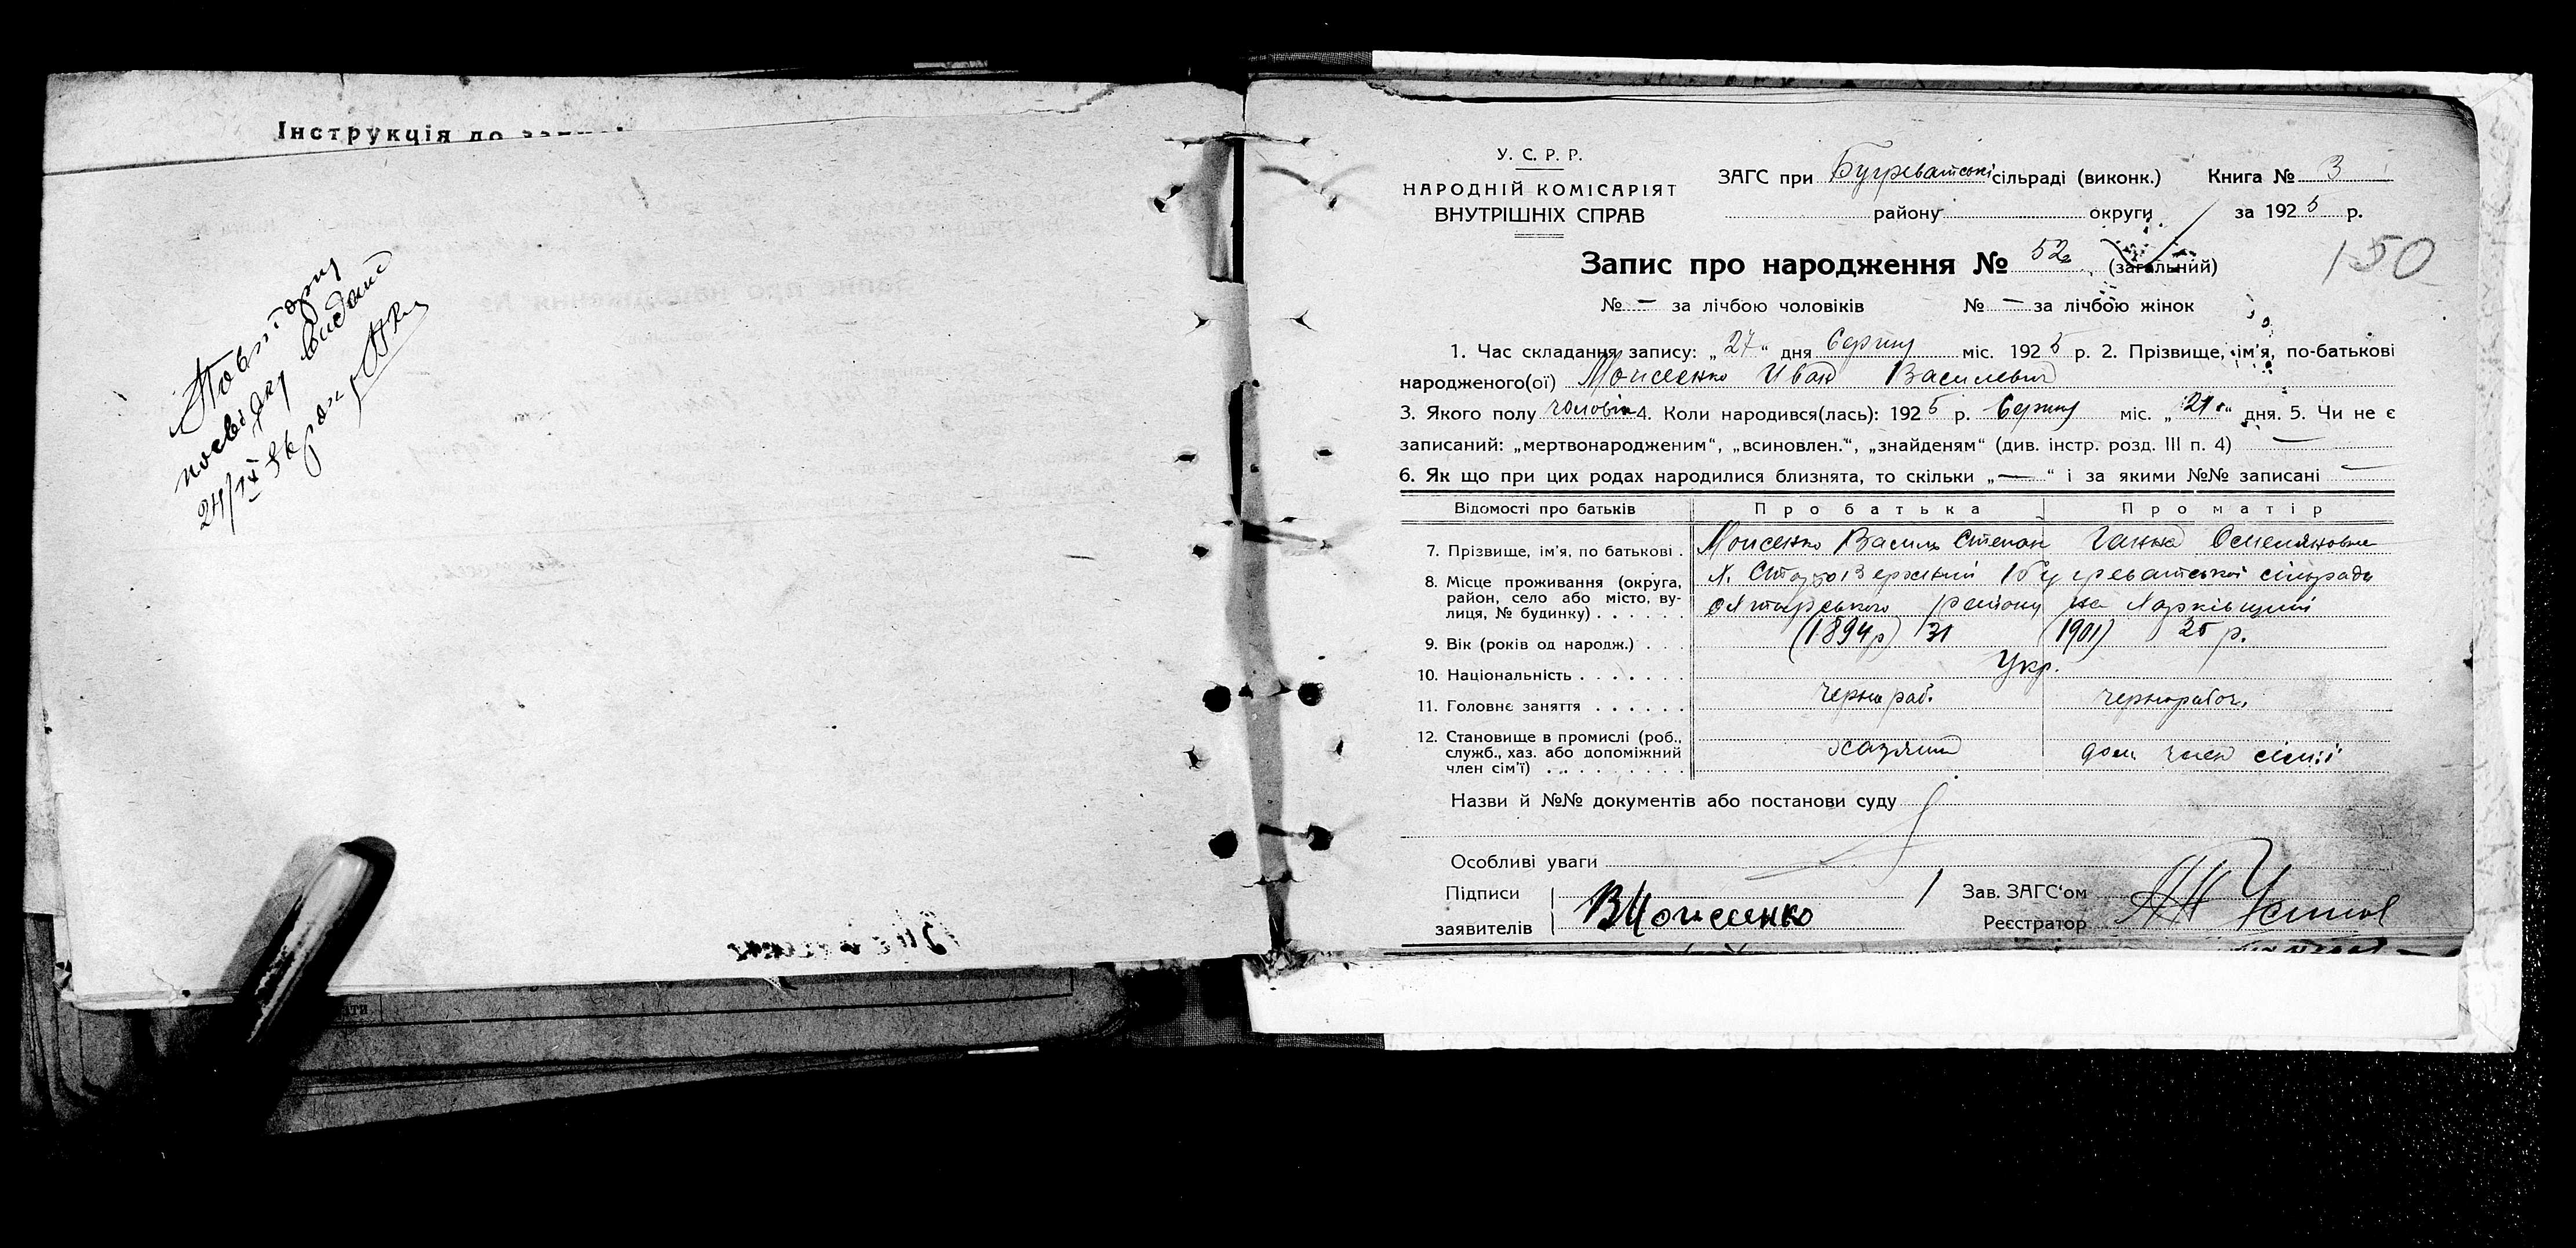 Інструкція до
Повторну
посвідку видано
24/IX 36 року
У. С. Р. Р.
НАРОДНІЙ КОМІСАРІЯТ
ВНУТРІШНІХ СПРАВ
ЗАГС при Бугреватські сільраді (виконк.) Книга № 3
району округи за 1925 р.
Запис про народження № 52 (загальний)
150
№ — за лічбою чоловіків № — за лічбою жінок
1. Час складання запису: „27“ дня Серпня міс. 1925 р. 2. Прізвище, ім'я, по-батькові
народженого(ої) Моисеенко Иван Василевич
3. Якого полу чоловік 4. Коли народився(лась): 1925 р. Серпня міс. „21“ дня. 5. Чи не є
записаний: „мертвонародженим“, „всиновлен.“, „знайденям“ (див. інстр. розд. III п. 4) —
6. Як що при цих родах народилися близнята, то скільки „—“ і за якими №№ записані —
Відомості про батьків Про батька Про матір
7. Прізвище, ім'я, по батькові . Моисеенко Василь Степан Ганна Осмеляновна
8. Місце проживання (округа, район, село або місто, вулиця, № будинку) . . . . . . Х. Бугреватської сільради
району на Харківщині
9. Вік (років од народж.) . . . (1894р) 31 (1901) 25 р.
10. Національність . . . . . . . Укр.
11. Головнє заняття . . . . . . чернораб. чернорабоч.
12. Становище в промислі (роб., служб., хаз. або допоміжний член сім'ї) . . . . . . . . . хазяин дом. член сімії
Назви й №№ документів або постанови суду
Особливі уваги
Підписи заявителів В Моисеенко
Зав. ЗАГС'ом
Реєстратор